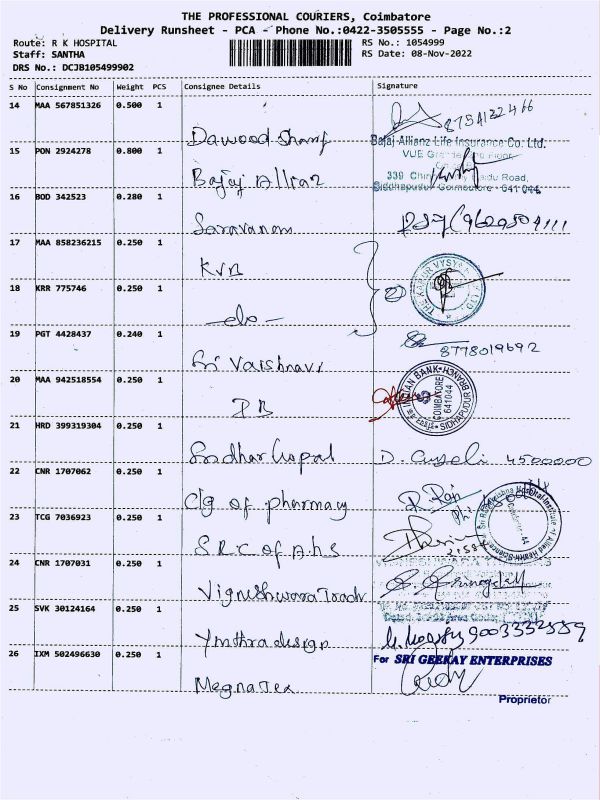 THE PROFESSIONAL COURIERS, Coimbatore
Delivery Runsheet - PCA - Phone No.:0422-3505555 - Page No.:2
Route: R K HOSPITAL
RS No.: 1054999
Staff: SANTHA
RS Date: 08-Nov-2022
DRS No.: DCJB105499902
S No Consignment No Weight PCS Consignee Details Signature
14 MAA 567851326 0.500 1
Dawood Sharif 8754122466
15 PON 2924278 0.800 1
Bajaj Allianz Life Insurance Co. Ltd.
VUE Floor,
Bajaj Allianz
339 Road,
Siddhapudur Coimbatore - 641 044
16 BOD 342523 0.280 1
Saravanan
17 MAA 858236215 0.250 1
KVB
THE KARUR VYSYA
18 KRR 775746 0.250 1
-do-
19 PGT 4428437 0.240 1
Sri Vaishnavi 8778019692
20 MAA 942518554 0.250 1
INDIAN BANK
SIDHAPUDUR BRANCH
COIMBATORE
641044
IB
21 HRD 399319304 0.250 1
Sridhar Gopal 4500000
22 CNR 1707062 0.250 1
Clg of pharmacy
23 TCG 7036923 0.250 1
Hospital Institute of Allied Health Sciences
Coimbatore 44
S.R.I.C of A.h.S
24 CNR 1707031 0.250 1
Vigneshwara
25 SVK 30124164 0.250 1
Ymthra design
26 IXM 502496630 0.250 1
For SRI GEEKAY ENTERPRISES
MegnaTex
Proprietor